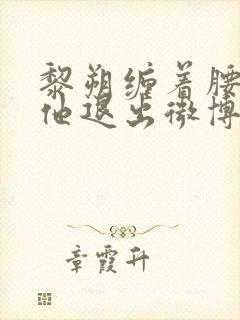 黎朔缠着腰
他退出微博
章霞升